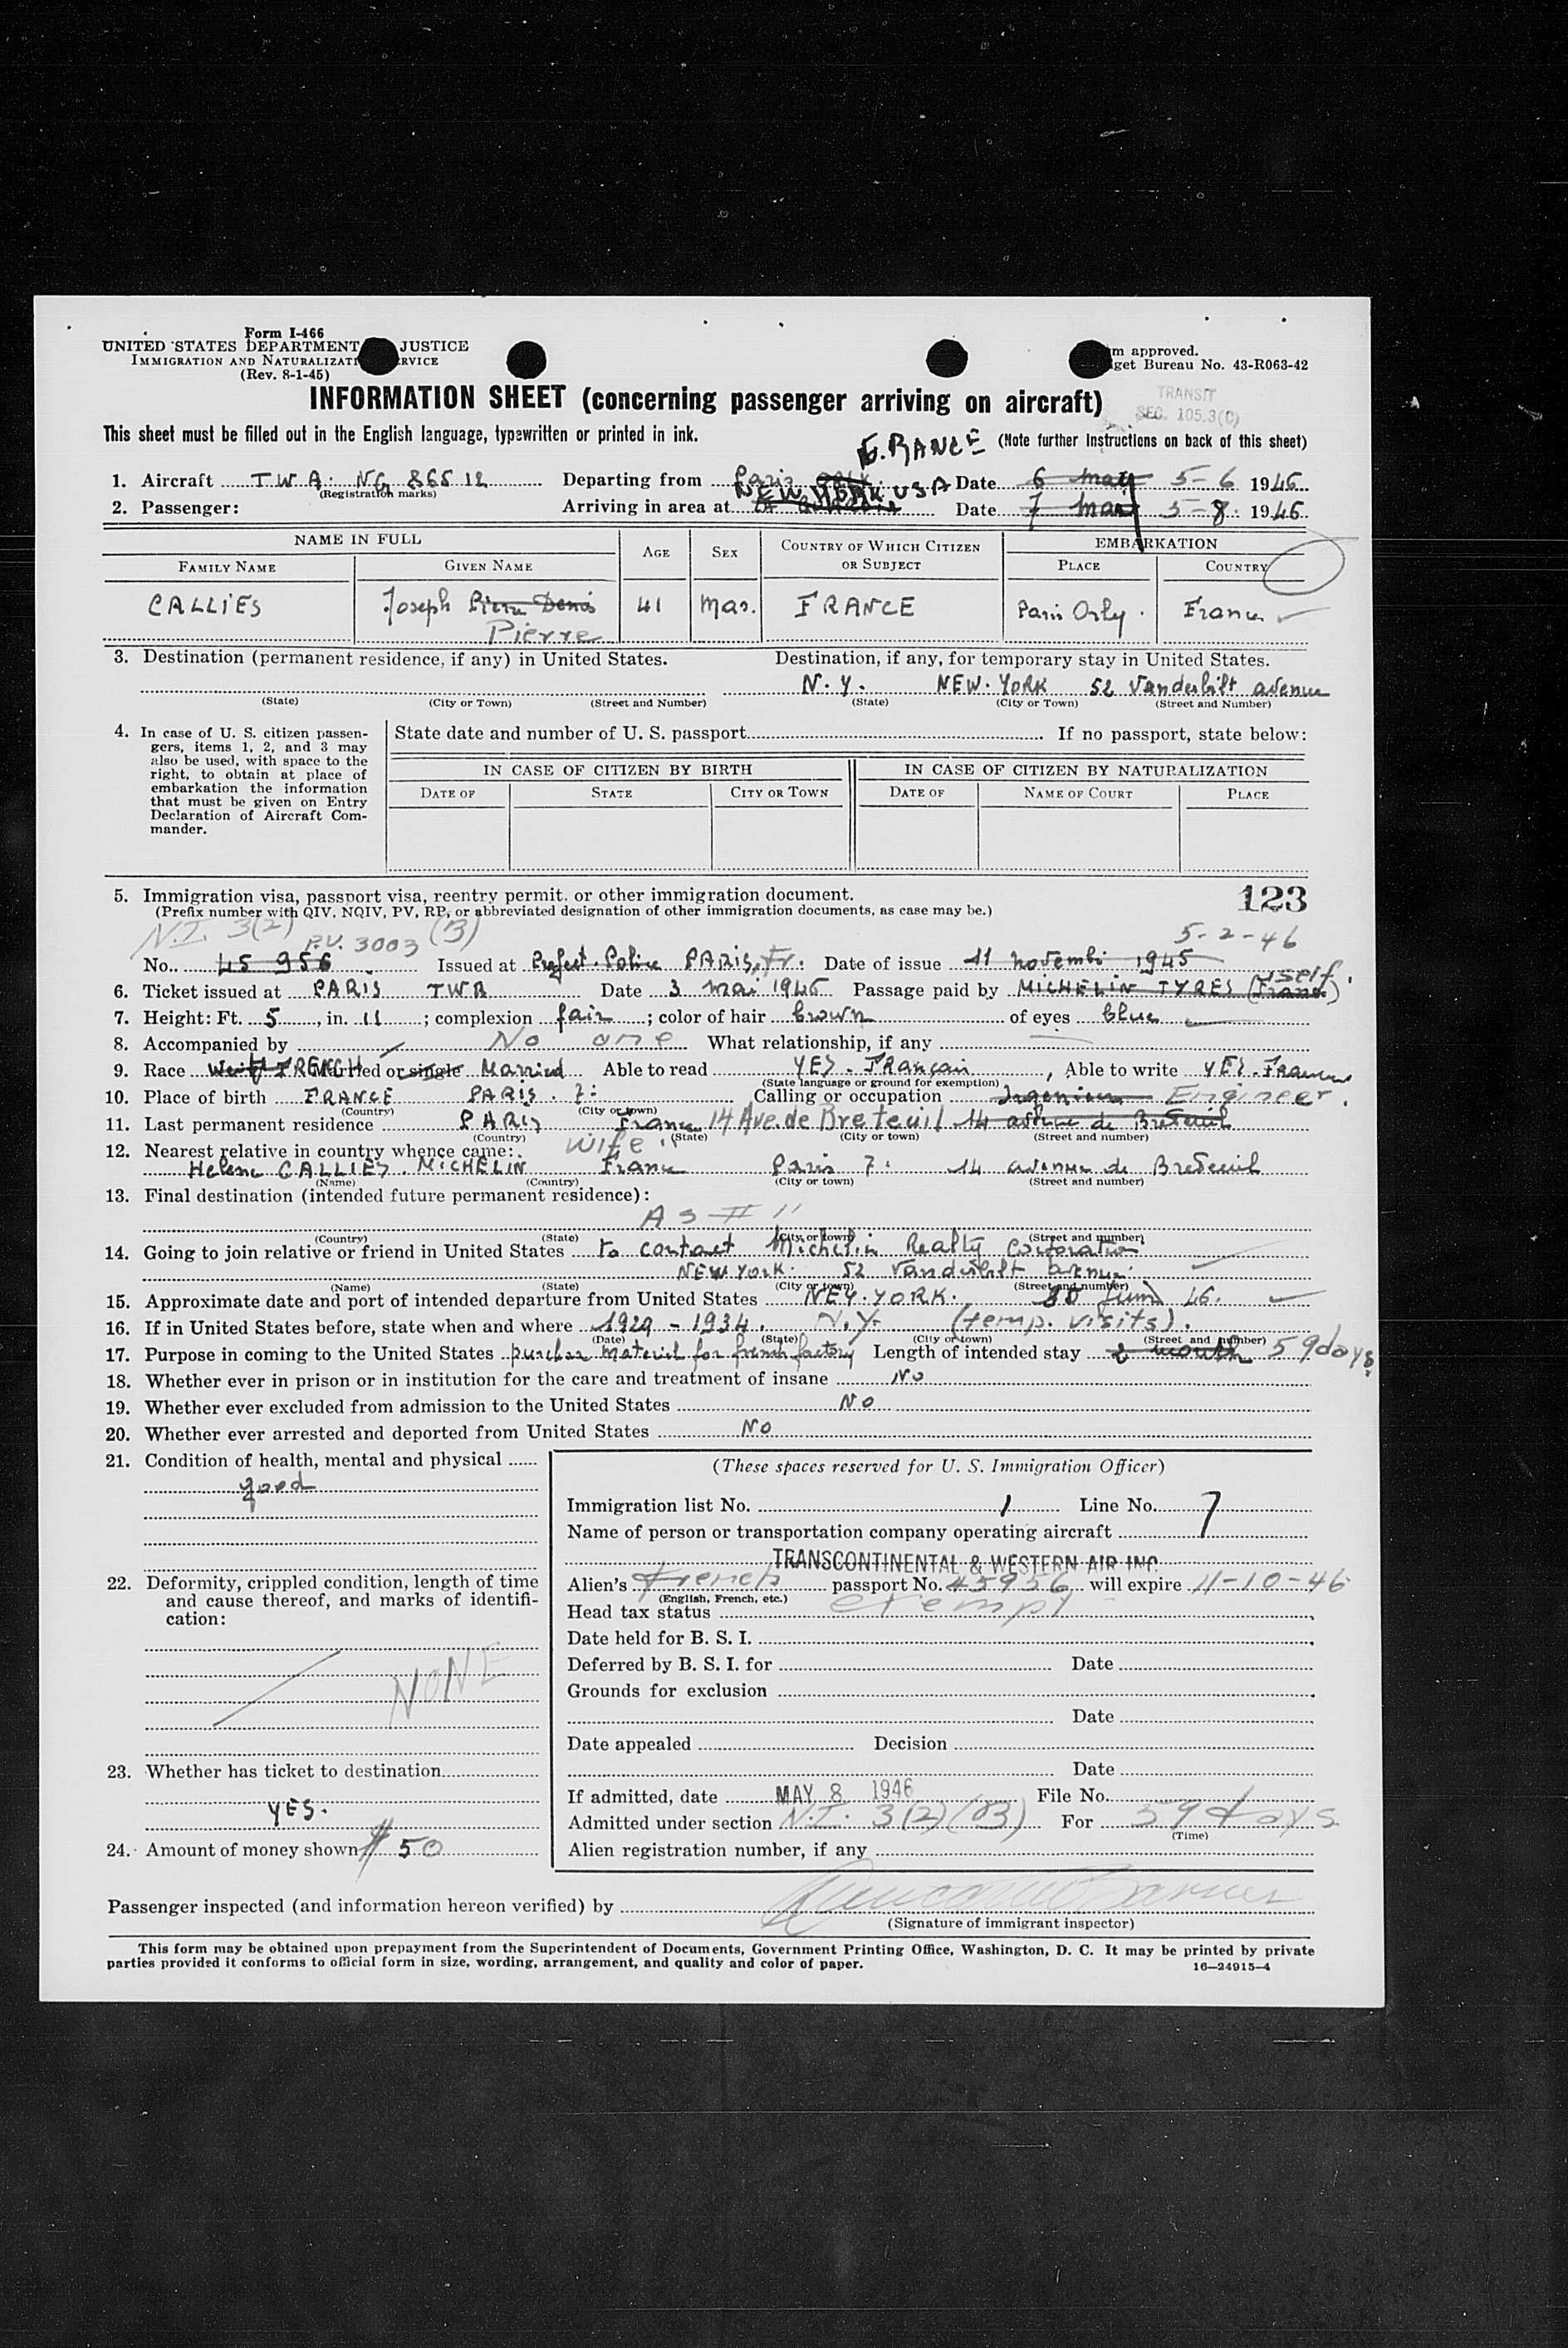 Form I-466
UNITED STATES DEPARTMENT JUSTICE
IMMIGRATION AND NATURALIZATI RVICE
(Rev. 8-1-45)
m approved.
get Bureau No. 43-R063-42
INFORMATION SHEET (concerning passenger arriving on aircraft)
TRANSIT
SEC. 105.3(C)
This sheet must be filled out in the English language, typewritten or printed in ink.
FRANCE (Note further Instructions on back of this sheet)
1. Aircraft T W A. NG 86512 Departing from Paris Date 6 May 5-6 1946
(Registration marks)
NEW YORK USA
2. Passenger: Arriving in area at Date 7 May 5-8 1946
NAME IN FULL AGE SEX COUNTRY OF WHICH CITIZEN OR SUBJECT EMBARKATION
FAMILY NAME GIVEN NAME PLACE COUNTRY
CALLIES Joseph Pierre Denis 41 Mas. FRANCE Paris Orly. France
Pierre
3. Destination (permanent residence, if any) in United States. Destination, if any, for temporary stay in United States.
N. Y. NEW. YORK 52 Vanderbilt avenue
(State) (City or Town) (Street and Number) (State) (City or Town) (Street and Number)
4. In case of U. S. citizen passen-
gers, items 1, 2, and 3 may
also be used, with space to the
right, to obtain at place of
embarkation the information
that must be given on Entry
Declaration of Aircraft Com-
mander.
State date and number of U. S. passport If no passport, state below:
IN CASE OF CITIZEN BY BIRTH IN CASE OF CITIZEN BY NATURALIZATION
DATE OF STATE CITY OR TOWN DATE OF NAME OF COURT PLACE
5. Immigration visa, passport visa, reentry permit, or other immigration document. 123
(Prefix number with QIV, NQIV, PV, RP, or abbreviated designation of other immigration documents, as case may be.)
N.I. 3(2) (B)
P.V. 3003 5-2-46
No. 45 956 Issued at Prefect. Police PARIS, Fr. Date of issue 11 novembre 1945
self.
6. Ticket issued at PARIS TWA Date 3 mai 1946 Passage paid by MICHELIN TYRES (France)
7. Height: Ft. 5, in. 11; complexion fair; color of hair brown of eyes blue
8. Accompanied by No one What relationship, if any
9. Race FRENCH Married or single Married Able to read YES - Français, Able to write YES - Français
(State language or ground for exemption)
10. Place of birth FRANCE PARIS. 7: Calling or occupation Ingenieur Engineer.
(Country) (City or town)
11. Last permanent residence PARIS France 14 Ave. de Breteuil 14 avenue de Breteuil
(Country) (State) (City or town) (Street and number)
12. Nearest relative in country whence came: wife
Helene CALLIES. MICHELIN France Paris 7: 14 avenue de Breteuil
(Name) (Country) (City or town) (Street and number)
13. Final destination (intended future permanent residence):
As # 11
(Country) (State) (City or town) (Street and number)
14. Going to join relative or friend in United States to contact Michelin Realty Corporation
NEW YORK. 52 Vanderbilt avenue.
(Name) (State) (City or town) (Street and number)
15. Approximate date and port of intended departure from United States NEY. YORK. 30 Juin 46.
16. If in United States before, state when and where 1929 - 1934. N.Y. (temp. visits).
(Date) (State) (City or town) (Street and number)
17. Purpose in coming to the United States purchase material for french factory Length of intended stay 2 month 59 days
18. Whether ever in prison or in institution for the care and treatment of insane No
19. Whether ever excluded from admission to the United States No
20. Whether ever arrested and deported from United States No
21. Condition of health, mental and physical
good
22. Deformity, crippled condition, length of time
and cause thereof, and marks of identifi-
cation:
NONE
23. Whether has ticket to destination
YES.
24. Amount of money shown $ 50
(These spaces reserved for U. S. Immigration Officer)
Immigration list No. 1 Line No. 7
Name of person or transportation company operating aircraft
TRANSCONTINENTAL & WESTERN AIR INC.
Alien's French passport No. 45956 will expire 11-10-46
(English, French, etc.)
Head tax status exempt
Date held for B. S. I.
Deferred by B. S. I. for Date
Grounds for exclusion
Date
Date appealed Decision
Date
If admitted, date MAY 8 1946 File No.
Admitted under section N.I. 3(2)(B) For 59 days
(Time)
Alien registration number, if any
Passenger inspected (and information hereon verified) by
(Signature of immigrant inspector)
This form may be obtained upon prepayment from the Superintendent of Documents, Government Printing Office, Washington, D. C. It may be printed by private
parties provided it conforms to official form in size, wording, arrangement, and quality and color of paper. 16—24915-4